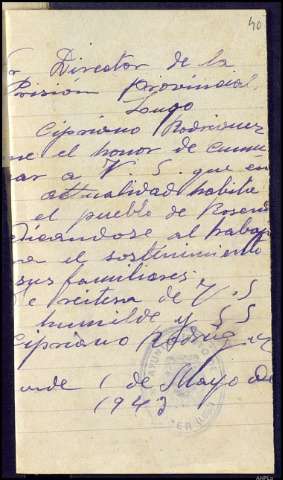 40
Director de la
Prision Provincial
Lugo
Cipriano Rodriguez
ne el honor de comu
car a V. S. que en
actualidad habita
el pueblo de Rosen
dicandose al trabajo
ra el sostenimiento
sus familiares.
e reitera de V. S
humilde y SS
Cipriano Rodríguez
1 de Mayo de
1943